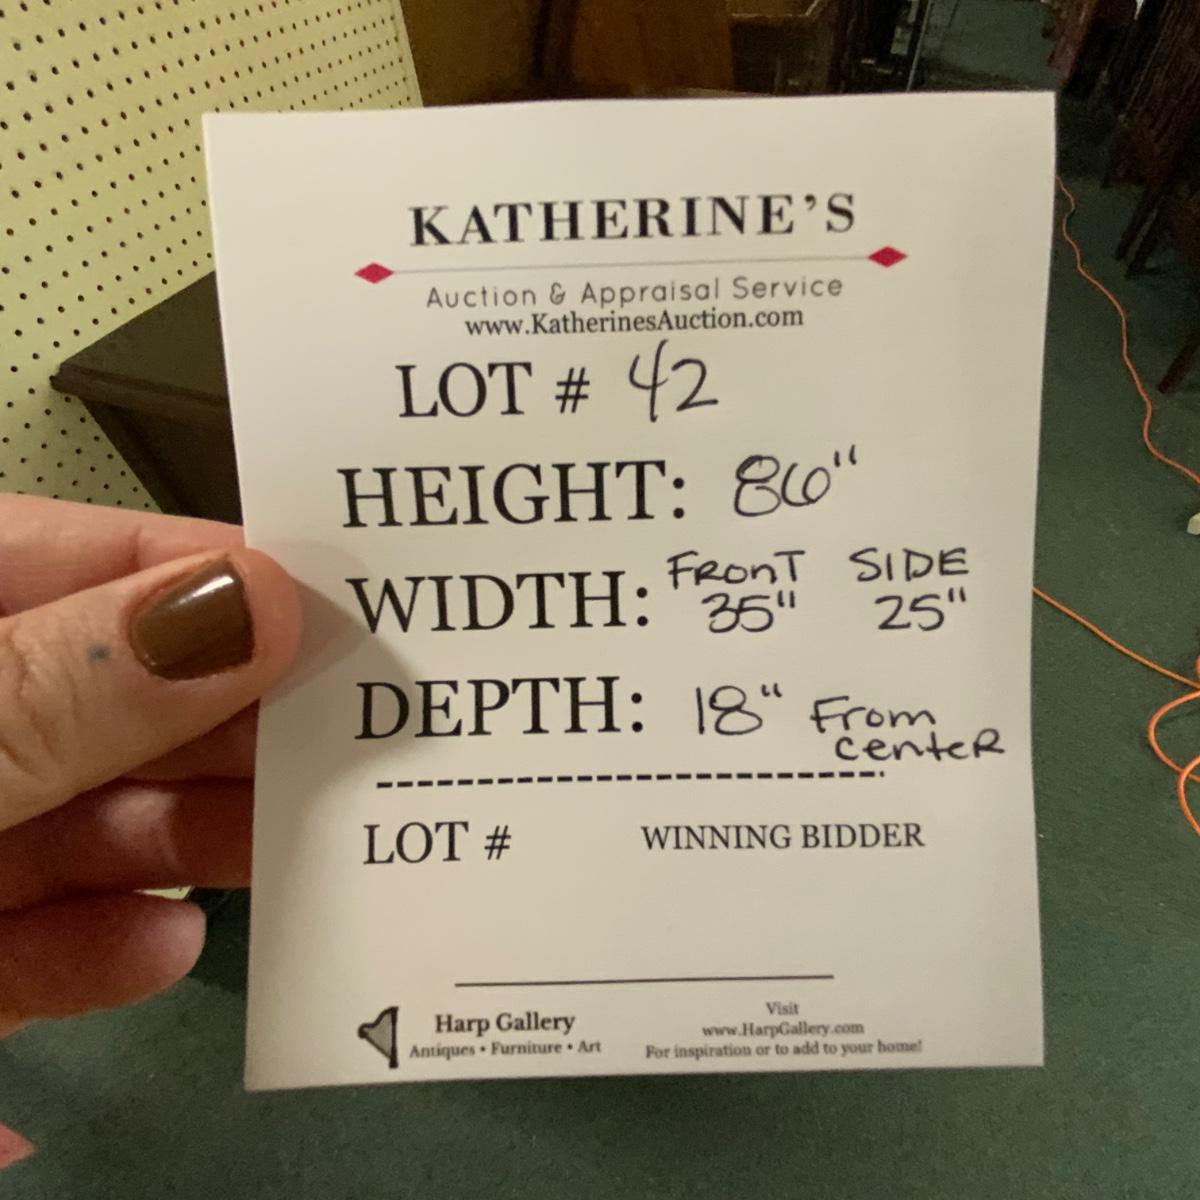 KATHERINE'S
Auction & Appraisal Service
www.KatherinesAuction.com
LOT # 42
HEIGHT: 86"
WIDTH: FRONT 35" SIDE 25"
DEPTH: 18" From center
LOT # WINNING BIDDER
Harp Gallery
Antiques • Furniture • Art
Visit
www.HarpGallery.com
For inspiration or to add to your home!